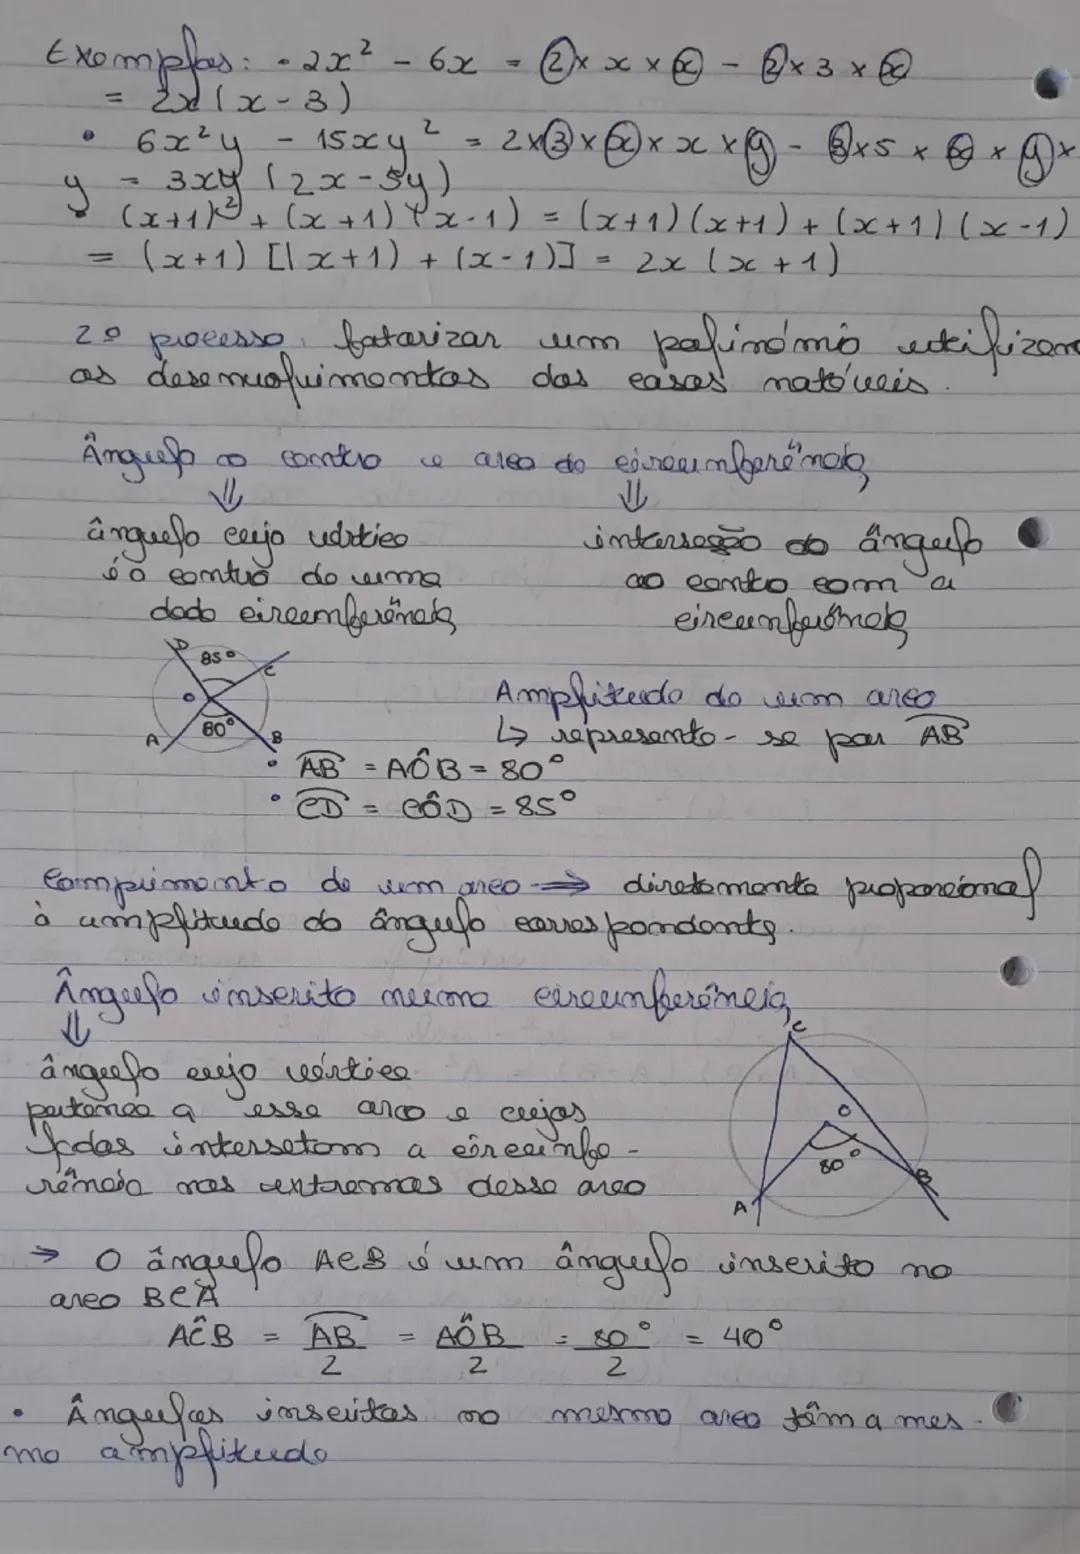 Exemplos: • 2x² - 6x = 2 × x × x - 2 × 3 × x
= 2x (x - 3)
• 6x²y - 15xy² = 2×3×x×x×y - 3×5×x×y×
y = 3xy (2x - 5y)
• (x+1)² + (x+1)(x-1) = (x+1)(x+1) + (x+1)(x-1)
= (x+1) [(x+1) + (x-1)] = 2x (x+1)
2º processo: fatorizar um polinómio utilizan
os desenvolvimentos dos casos notáveis.
Ângulo ao centro e arco de circunferência
⇓ ⇓
ângulo cujo vértice interseção do ângulo
é o centro de uma ao centro com a
dada circunferência circunferência
D 85° C
O
A 80° B
Amplitude de um arco
↳ representa-se por AB
• AB = AÔB = 80°
• CD = CÔD = 85°
Comprimento de um arco ⇒ diretamente proporcional
à amplitude do ângulo correspondente.
Ângulo inscrito numa circunferência
⇓
ângulo cujo vértice
pertence a esse arco e cujos
lados intersetam a circunfe-
rência nos extremos desse arco
C
O
80°
A B
→ O ângulo ACB é um ângulo inscrito no
arco BCA
AĈB = AB/2 = AÔB/2 = 80°/2 = 40°
• Ângulos inscritos no mesmo arco têm a mes-
mo amplitude